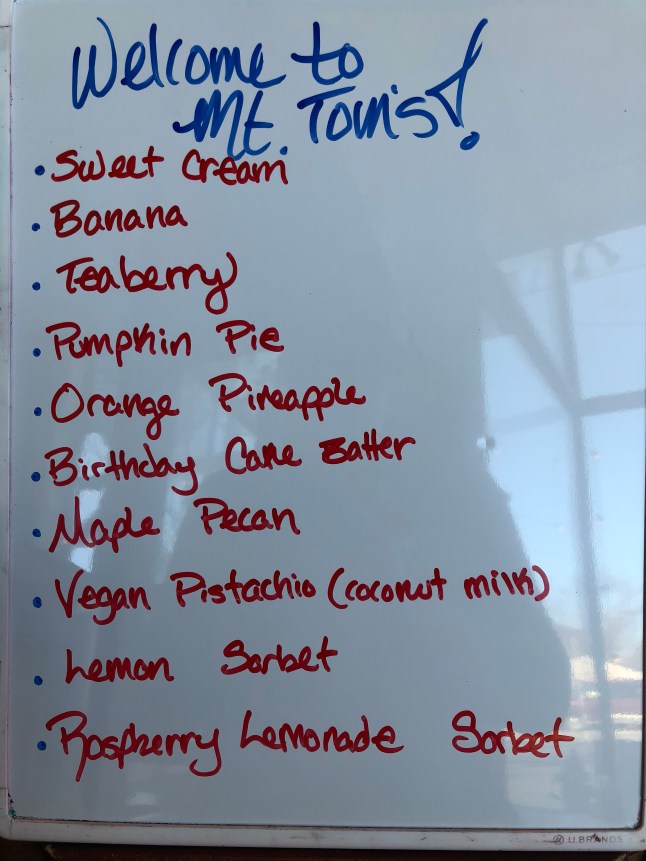 Welcome to
Mt. Tom's!
• Sweet Cream
• Banana
• Teaberry
• Pumpkin Pie
• Orange Pineapple
• Birthday Cake Batter
• Maple Pecan
• Vegan Pistachio (coconut milk)
• Lemon Sorbet
• Raspberry Lemonade Sorbet
U BRANDS